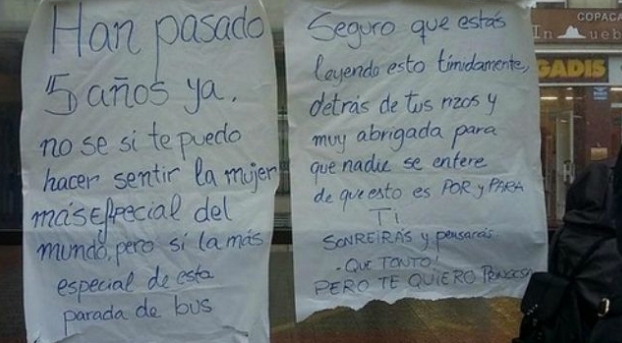 Han pasado
5 años ya,
no se si te puedo
hacer sentir la mujer
más especial del
mundo, pero si la más
especial de esta
parada de bus
Seguro que estás
leyendo esto tímidamente,
detrás de tus rizos y
muy abrigada para
que nadie se entere
de que esto es POR y PARA
TI
SONREIRÁS y pensarás
QUE TONTO!
PERO TE QUIERO
COPACA
In ueb
GADIS